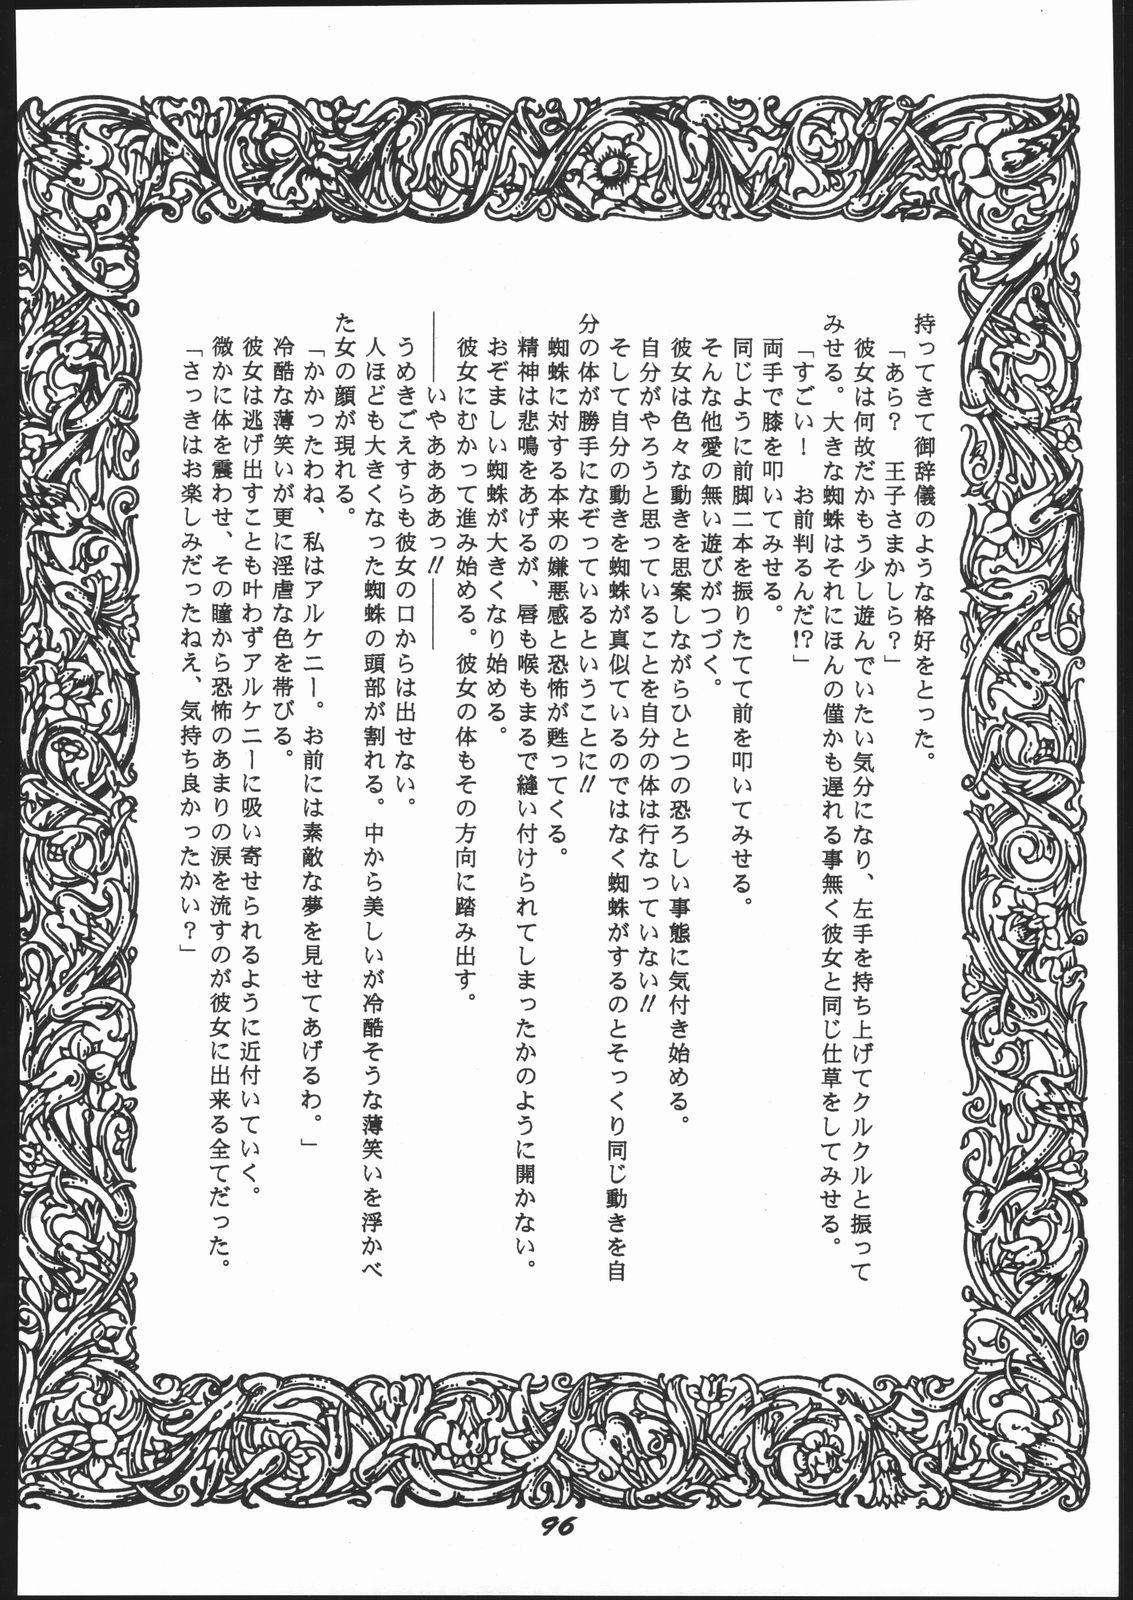 持ってきて御辞儀のような格好をとった。
「あら？　王子さまかしら？」
彼女は何故だかもう少し遊んでいたい気分になり、左手を持ち上げてクルクルと振って
みせる。大きな蜘蛛はそれにほんの僅かも遅れる事無く彼女と同じ仕草をしてみせる。
「すごい！　お前判るんだ!?」
両手で膝を叩いてみせる。
同じように前脚二本を振りたてて前を叩いてみせる。
そんな他愛の無い遊びがつづく。
彼女は色々な動きを思案しながらひとつの恐ろしい事態に気付き始める。
自分がやろうと思っていることを自分の体は行なっていない!!
そして自分の動きを蜘蛛が真似ているのではなく蜘蛛がするのとそっくり同じ動きを自
分の体が勝手になぞっているということに!!
蜘蛛に対する本来の嫌悪感と恐怖が甦ってくる。
精神は悲鳴をあげるが、唇も喉もまるで縫い付けられてしまったかのように開かない。
おぞましい蜘蛛が大きくなり始める。
彼女にむかって進み始める。彼女の体もその方向に踏み出す。
―――いやああああっ!!―――
うめきごえすらも彼女の口からは出せない。
人ほども大きくなった蜘蛛の頭部が割れる。中から美しいが冷酷そうな薄笑いを浮かべ
た女の顔が現れる。
「かかったわね、私はアルケニー。お前には素敵な夢を見せてあげるわ。」
冷酷な薄笑いが更に淫虐な色を帯びる。
彼女は逃げ出すことも叶わずアルケニーに吸い寄せられるように近付いていく。
微かに体を震わせ、その瞳から恐怖のあまりの涙を流すのが彼女に出来る全てだった。
「さっきはお楽しみだったねえ、気持ち良かったかい？」
96